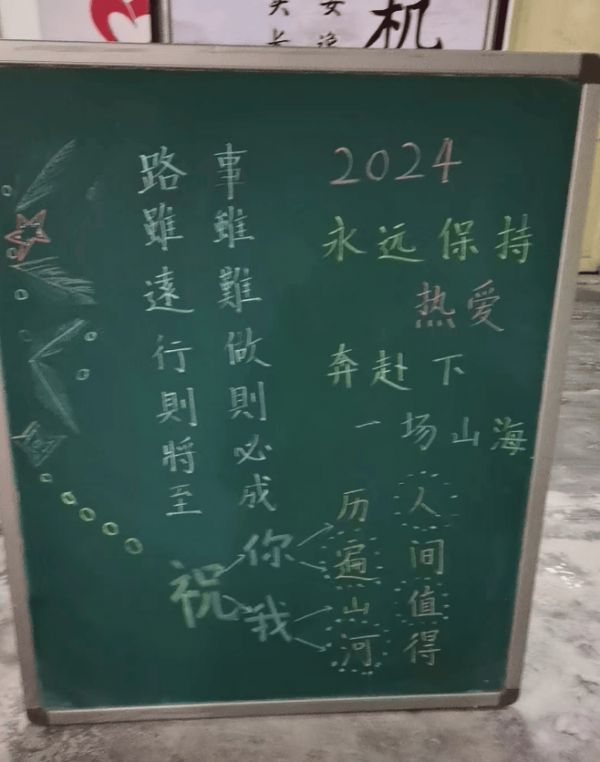 机
2024
永远保持
热爱
奔赴下
一场山海
事雖難做則必成
路雖遠行則將至
祝
你
我
历遍山河
人间值得